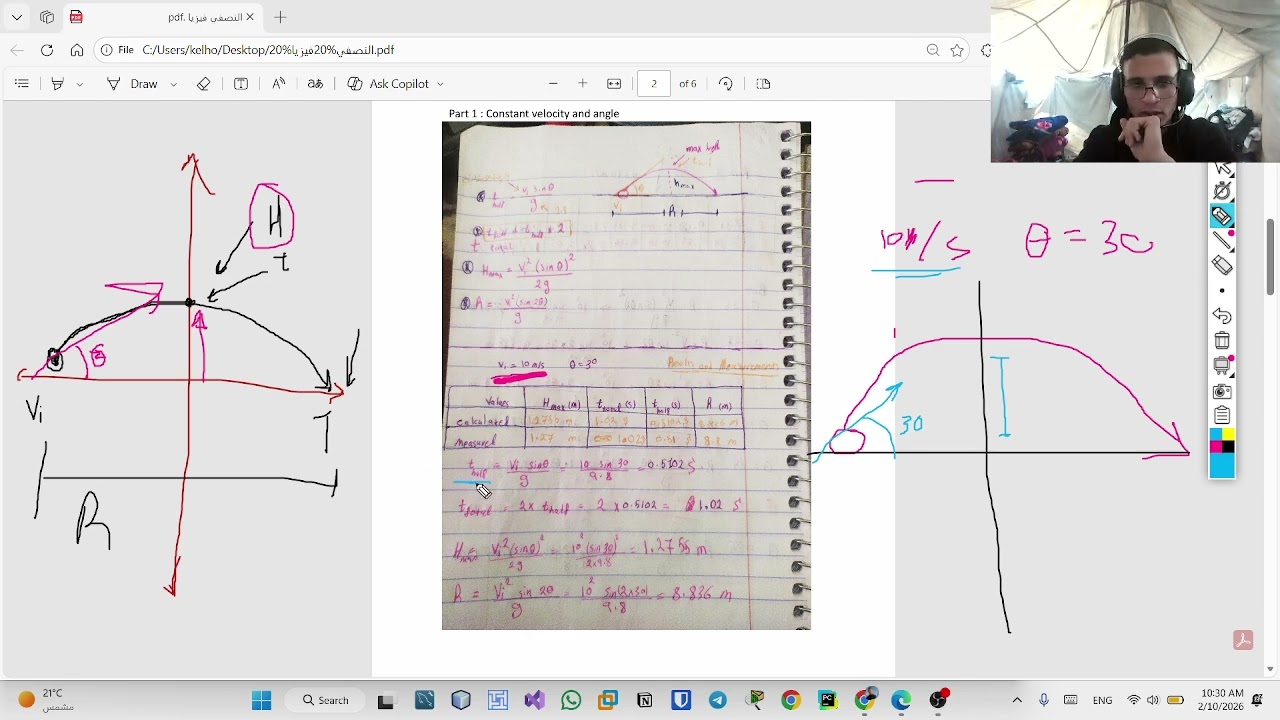 النصفي فيزيا.pdf
File
C:/Users/kelho/Desktop/20%فيزيا20%النصفي.pdf
Draw
Copilot
2
of 6
Part 1 : Constant velocity and angle
max hight
t half = Vi sinθ / g
9.8
hmax
R
t total = t half × 2
Hmax = Vi² (sinθ)² / 2g
R = Vi² (sin 2θ) / g
Vi = 10 m/s θ = 30
Results and Measurements
values Hmax (m) ttotal (s) R (m)
calculated
measured 1.27 m 8.8 m
t half = Vi sinθ / g = 10 sin 30 / 9.8 = 0.5102 s
t total = 2 × t half = 2 × 0.5102 = 1.02 s
Hmax = Vi² (sinθ)² / 2g = 10² (sin 30)² / 2×9.8 = 1.2755 m
R = Vi² sin 2θ / g = 10² sin(2×30) / 9.8 = 8.836 m
H
t
θ
Vi
T
R
10m/s θ = 30
30
21°C
مشمس
Search
ENG
10:30 AM
2/10/2026